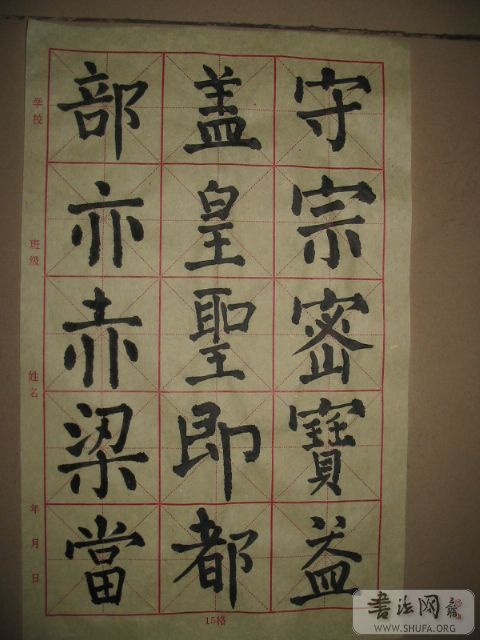 守宗密寶益
盖皇聖即都
部亦赤梁當
学校
班级
姓名
年月日
15格
書法网
WWW.SHUFA.ORG